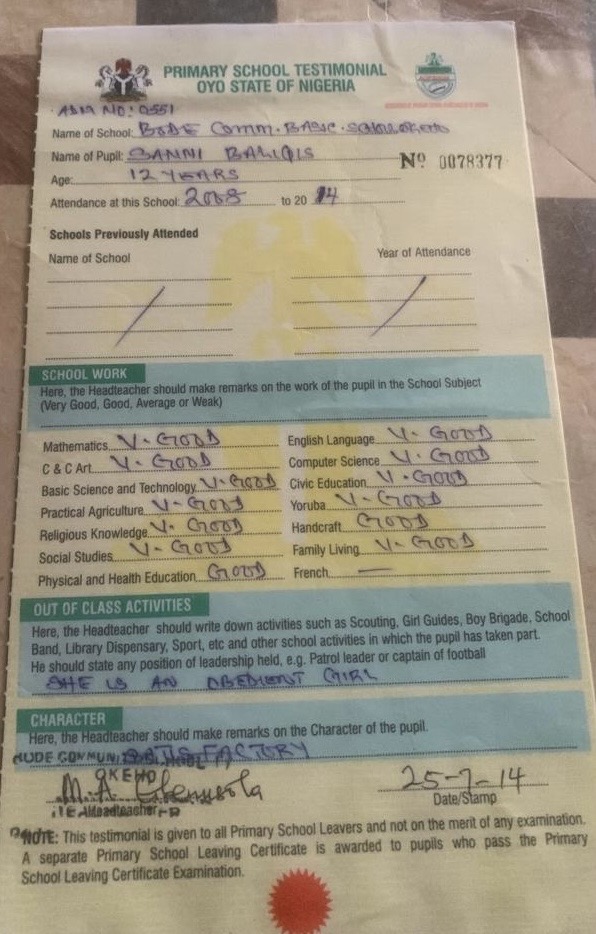 PRIMARY SCHOOL TESTIMONIAL
OYO STATE OF NIGERIA
ADM NO: 0551
Name of School: BODE Comm. BASIC. SCHOOL OKEHO
Name of Pupil: SANNI BALIQIS
Nº 0078377
Age: 12 YEARS
Attendance at this School: 2008 to 20 14
Schools Previously Attended
Name of School Year of Attendance
SCHOOL WORK
Here, the Headteacher should make remarks on the work of the pupil in the School Subject
(Very Good, Good, Average or Weak)
Mathematics V. GOOD English Language V. GOOD
C & C Art V. GOOD Computer Science V. GOOD
Basic Science and Technology V. GOOD Civic Education V. GOOD
Practical Agriculture V. GOOD Yoruba V. GOOD
Religious Knowledge V. GOOD Handcraft GOOD
Social Studies V. GOOD Family Living V. GOOD
Physical and Health Education GOOD French —
OUT OF CLASS ACTIVITIES
Here, the Headteacher should write down activities such as Scouting, Girl Guides, Boy Brigade, School
Band, Library Dispensary, Sport, etc and other school activities in which the pupil has taken part.
He should state any position of leadership held, e.g. Patrol leader or captain of football
SHE IS AN OBEDIENT GIRL
CHARACTER
Here, the Headteacher should make remarks on the Character of the pupil.
SATISFACTORY
OKEHO
M. A. 25-7-14
Headteacher Date/Stamp
NOTE: This testimonial is given to all Primary School Leavers and not on the merit of any examination.
A separate Primary School Leaving Certificate is awarded to pupils who pass the Primary
School Leaving Certificate Examination.